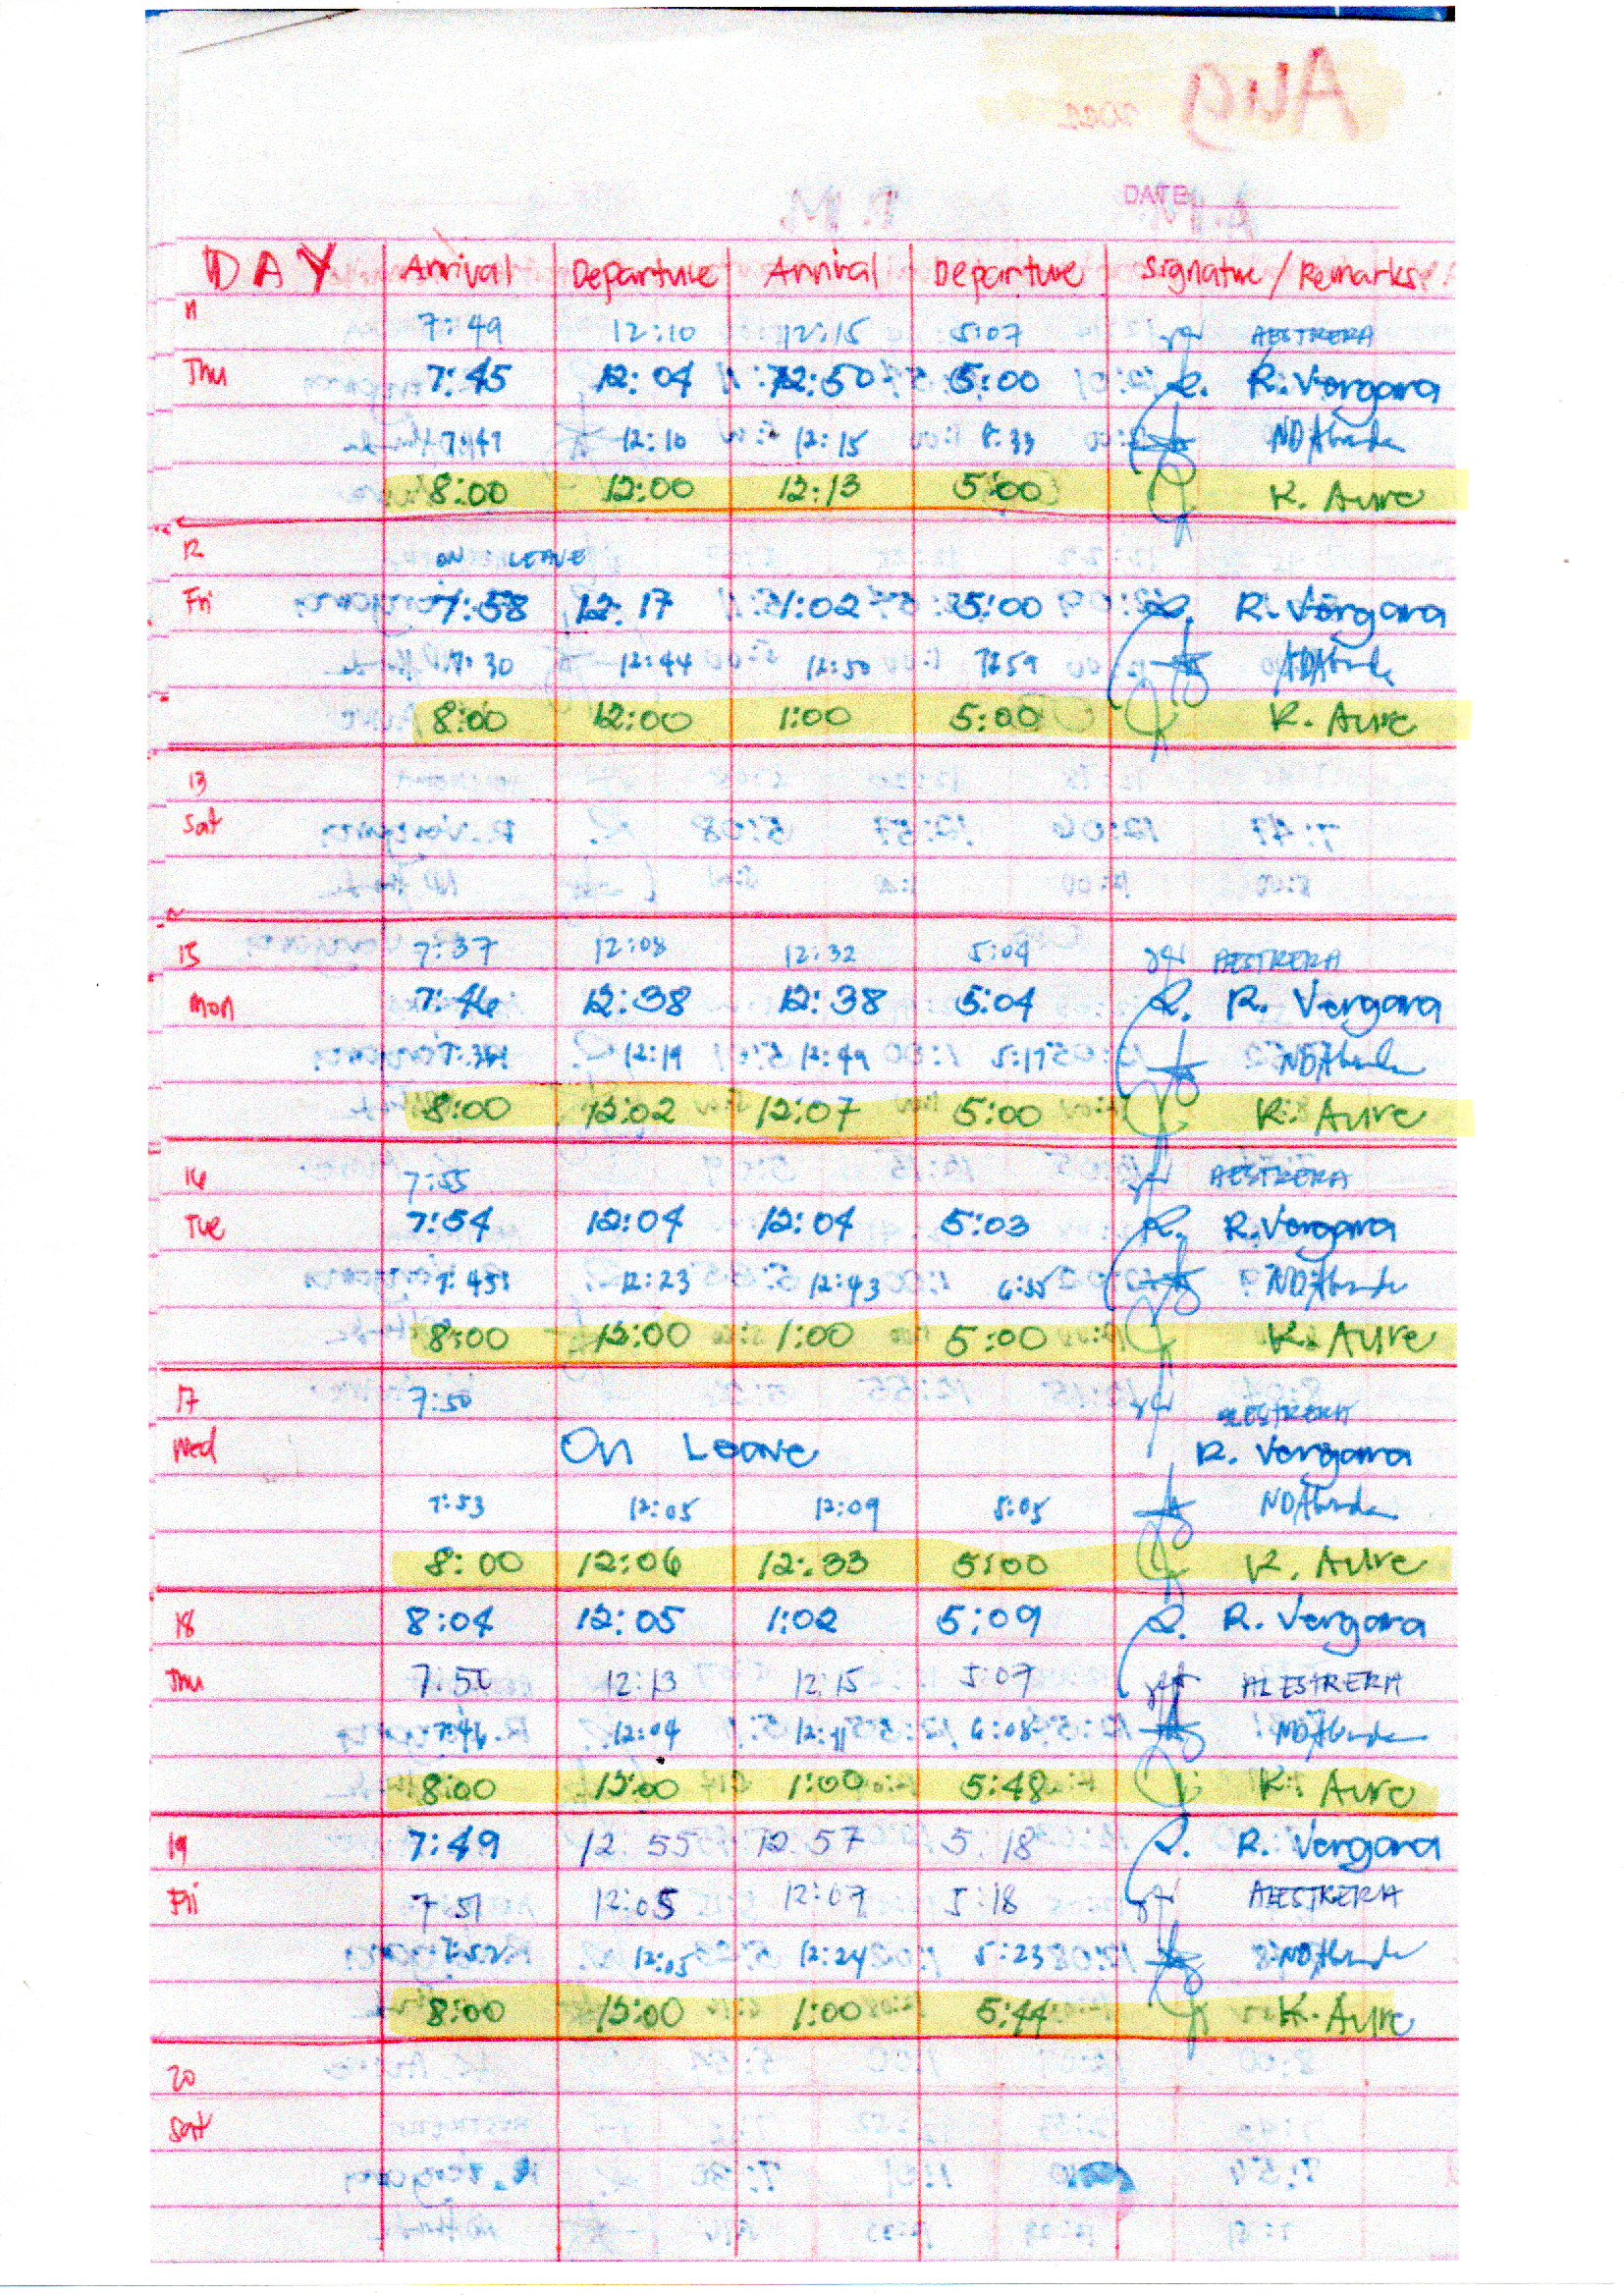 Aug 2022
DATE
DAY Arrival Departure Arrival Departure Signature/Remarks
11 7:49 12:10 12:15 5:07 AESTRERA
Thu 7:45 12:04 12:50 5:00 R. Vergara
7:47 12:10 12:15 5:33
8:00 12:00 12:13 5:00 K. Aure
12 ON LEAVE
Fri 7:58 12:17 1:02 5:00 R. Vergara
7:30 12:44 12:50
8:00 12:00 1:00 5:00 K. Aure
13
Sat
15 7:37 12:08 12:32 5:04 AESTRERA
Mon 7:46 12:38 12:38 5:04 R. Vergara
12:19 12:49 5:17
8:00 12:02 12:07 5:00 K. Aure
16 7:55 AESTRERA
Tue 7:54 12:04 12:04 5:03 R. Vergara
7:45 12:23 12:43 6:55
8:00 12:00 1:00 5:00 K. Aure
17 7:50 AESTRERA
Wed On Leave R. Vergara
7:53 12:05 12:09 5:05
8:00 12:06 12:33 5:00 K. Aure
18 8:04 12:05 1:02 5:09 R. Vergara
Thu 12:13 12:15 5:07 ALESTRERA
7:46 12:04 12:11 6:08
8:00 12:00 1:00 5:48 K. Aure
19 7:49 12 55 12 57 5 18 R. Vergara
Fri 7 51 12:05 12:07 5:18 AESTRERA
7:52 12:05 12:24 5:23
8:00 12:00 1:00 5:44 K. Aure
20
Sat